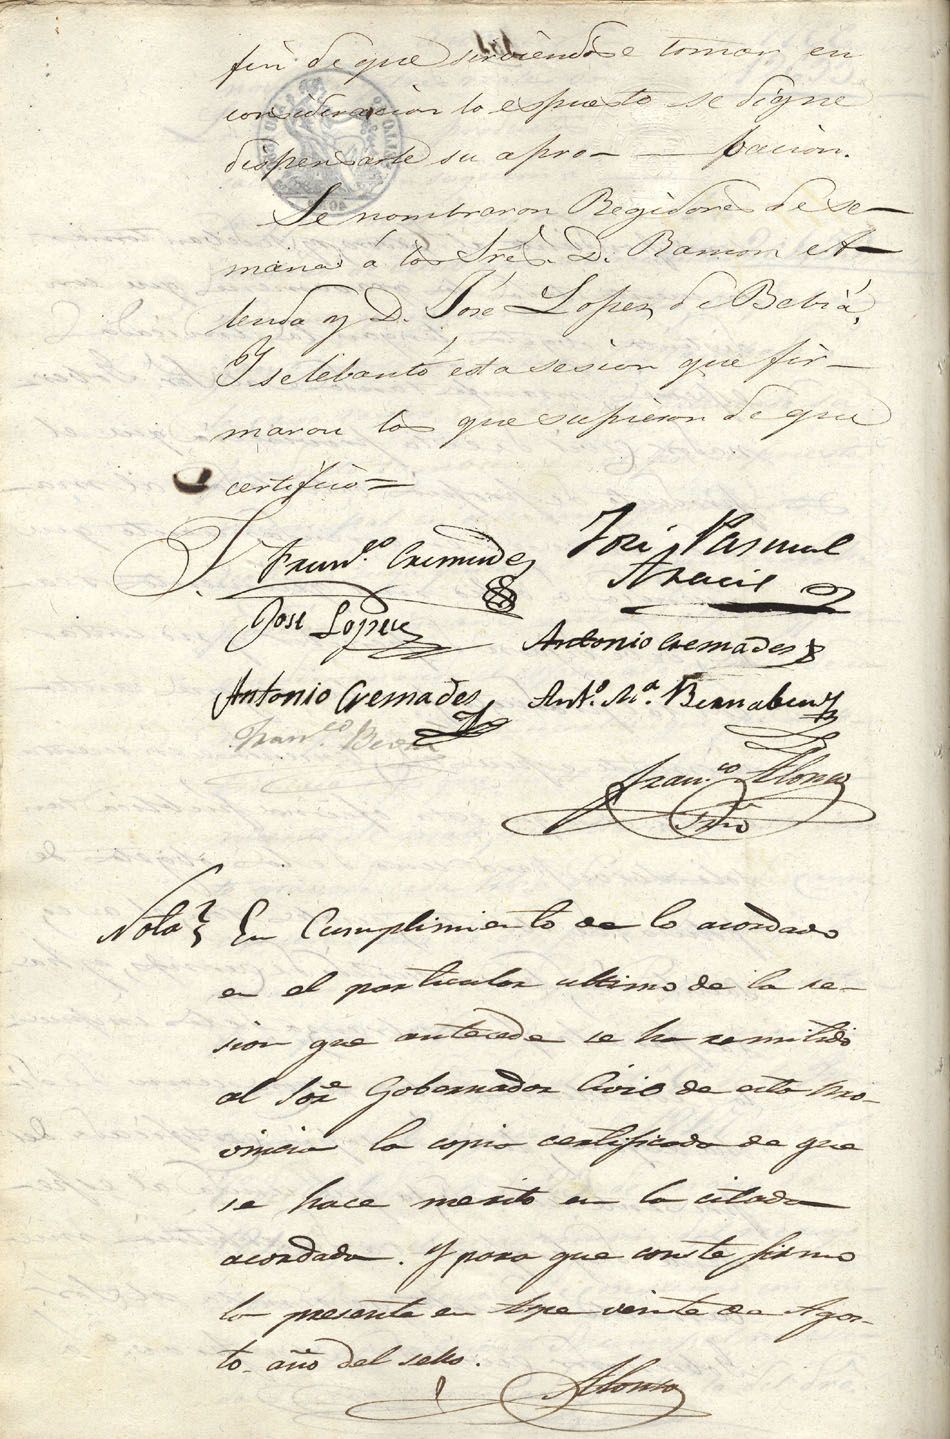 fin de que sirviendose tomar en
consideracion lo espuesto se digne
dispensarle su apro- — bacion.
Se nombraron Regidores de se-
mana á los Sres. D. Ramon
y D. José Lopez de Bebiá,
Y se lebantó esta sesion que fir-
maron los que supieron de que
certifico =
Fran.co Cremades
José Pascual
Aracil
José Lopez
Antonio Cremades
Antonio Cremades
Ant.o M.a Bernabeu
Fran.co
Fran.co Alonso
Srio
Nota En Cumplimiento de lo acordado
en el particular ultimo de la se-
sion que antecede se ha remitido
al Sor Gobernador Civil de esta Pro-
vincia la copia certificada de que
se hace merito en la citada
acordada. Y para que conste firmo
la presente en Aspe veinte de Agos-
to año del sello.
Alonso